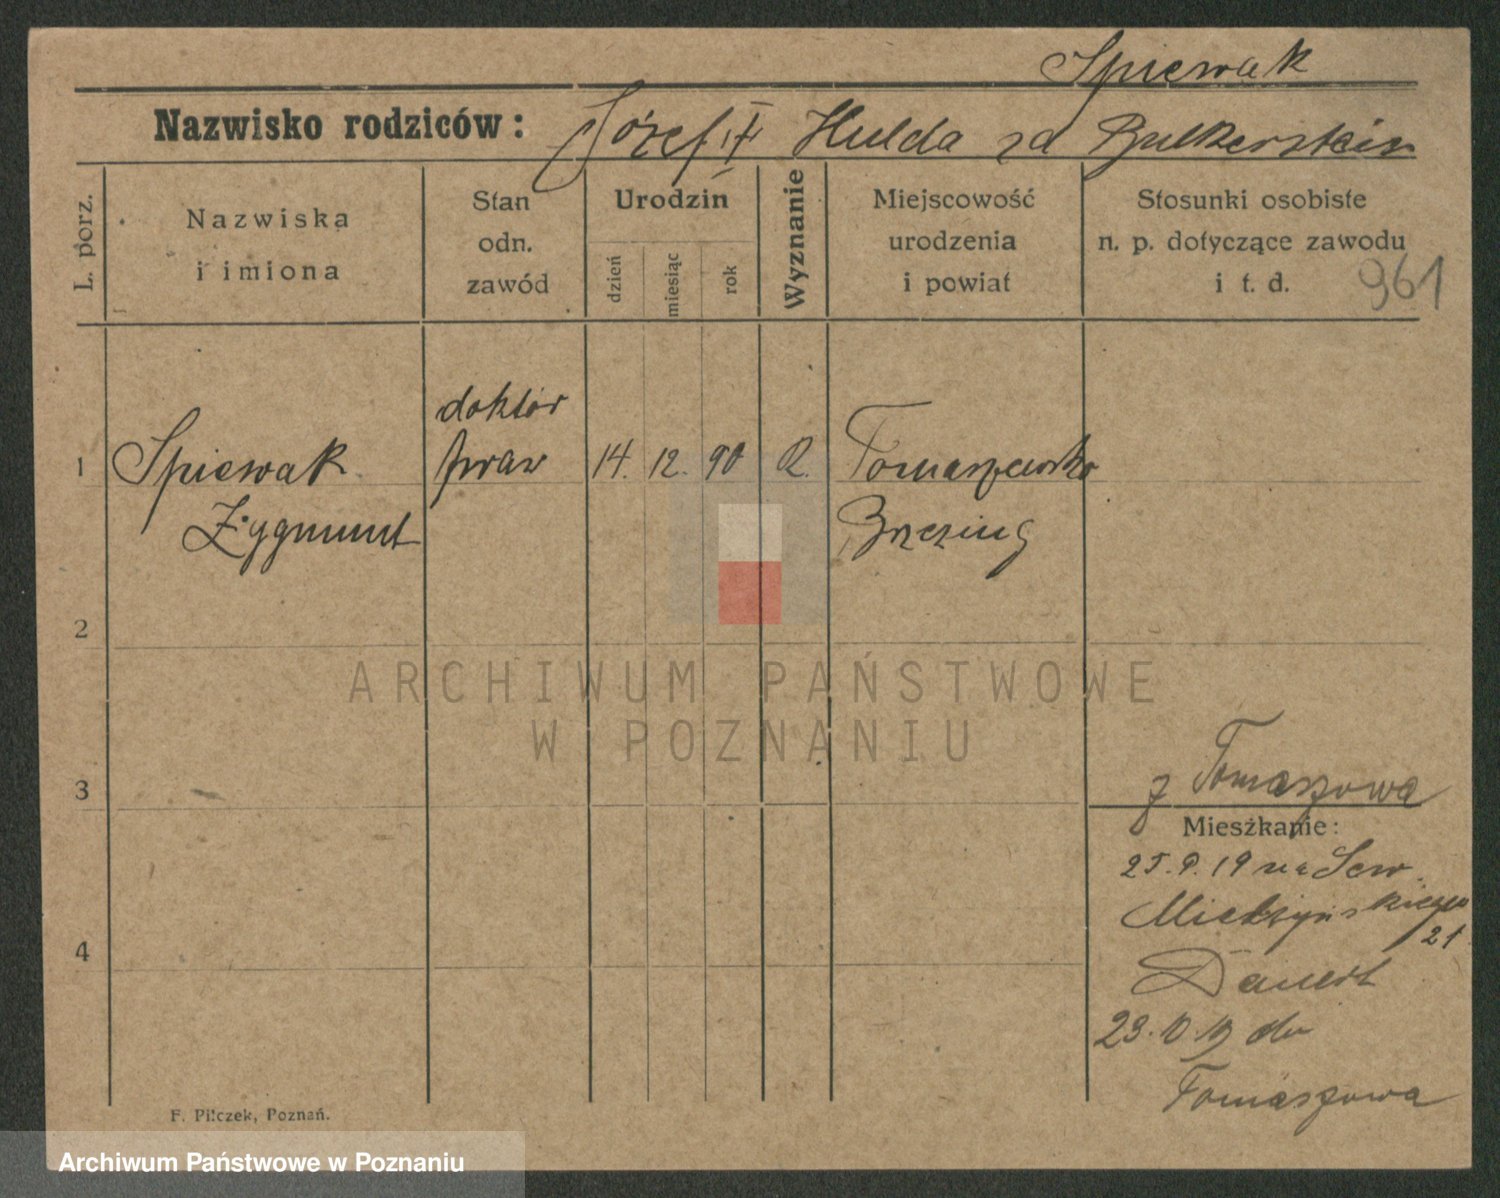 Spiewak
Nazwisko rodziców: Józef i Hulda za
L. porz.
Nazwiska
i imiona
Stan
odn.
zawód
Urodzin
dzień
miesiąc
rok
Wyznanie
Miejscowość
urodzenia
i powiat
Stosunki osobiste
n. p. dotyczące zawodu
i t. d.
961
1
Spiewak
Zygmunt
doktór
praw
14. 12. 90
Tomaszewsko
Brzeziny
2
3
4
z Tomaszowa
Mieszkanie:
na Sew.
Mielżyńskiego
21
do
Tomaszowa
F. Pilczek, Poznań.
ARCHIWUM PAŃSTWOWE
W POZNANIU
Archiwum Państwowe w Poznaniu